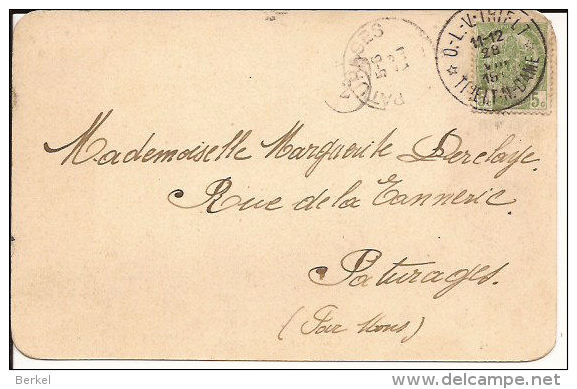 PATURAGES
O.-L.-V.-THIELT
11-12
28
VIII
THIELT-N.-DAME
5c
Mademoiselle Marguerite Derclaye.
Rue de la Tannerie.
Paturages.
(Par Mons)
Berkel
delcampe.net